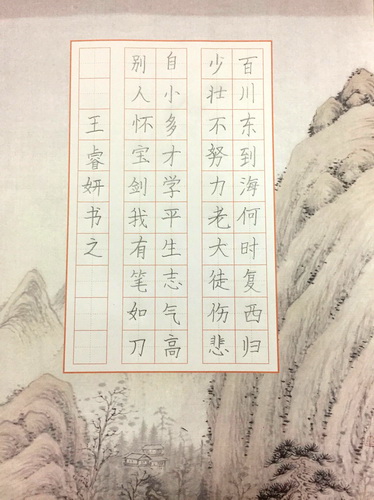 百川东到海何时复西归
少壮不努力老大徒伤悲
自小多才学平生志气高
别人怀宝剑我有笔如刀
王睿妍书之